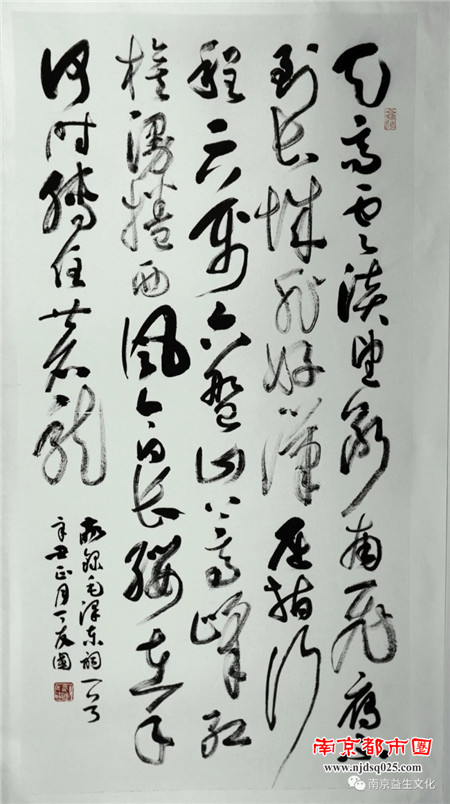 天高云淡望断南飞雁不
到长城非好汉屈指行
程二万六盘山上高峰红
旗漫捲西风今日长缨在手
何时缚住苍龙
敬录毛泽东词一首
辛丑正月丁友国
南京都市圈
www.njdsq025.com
南京益生文化